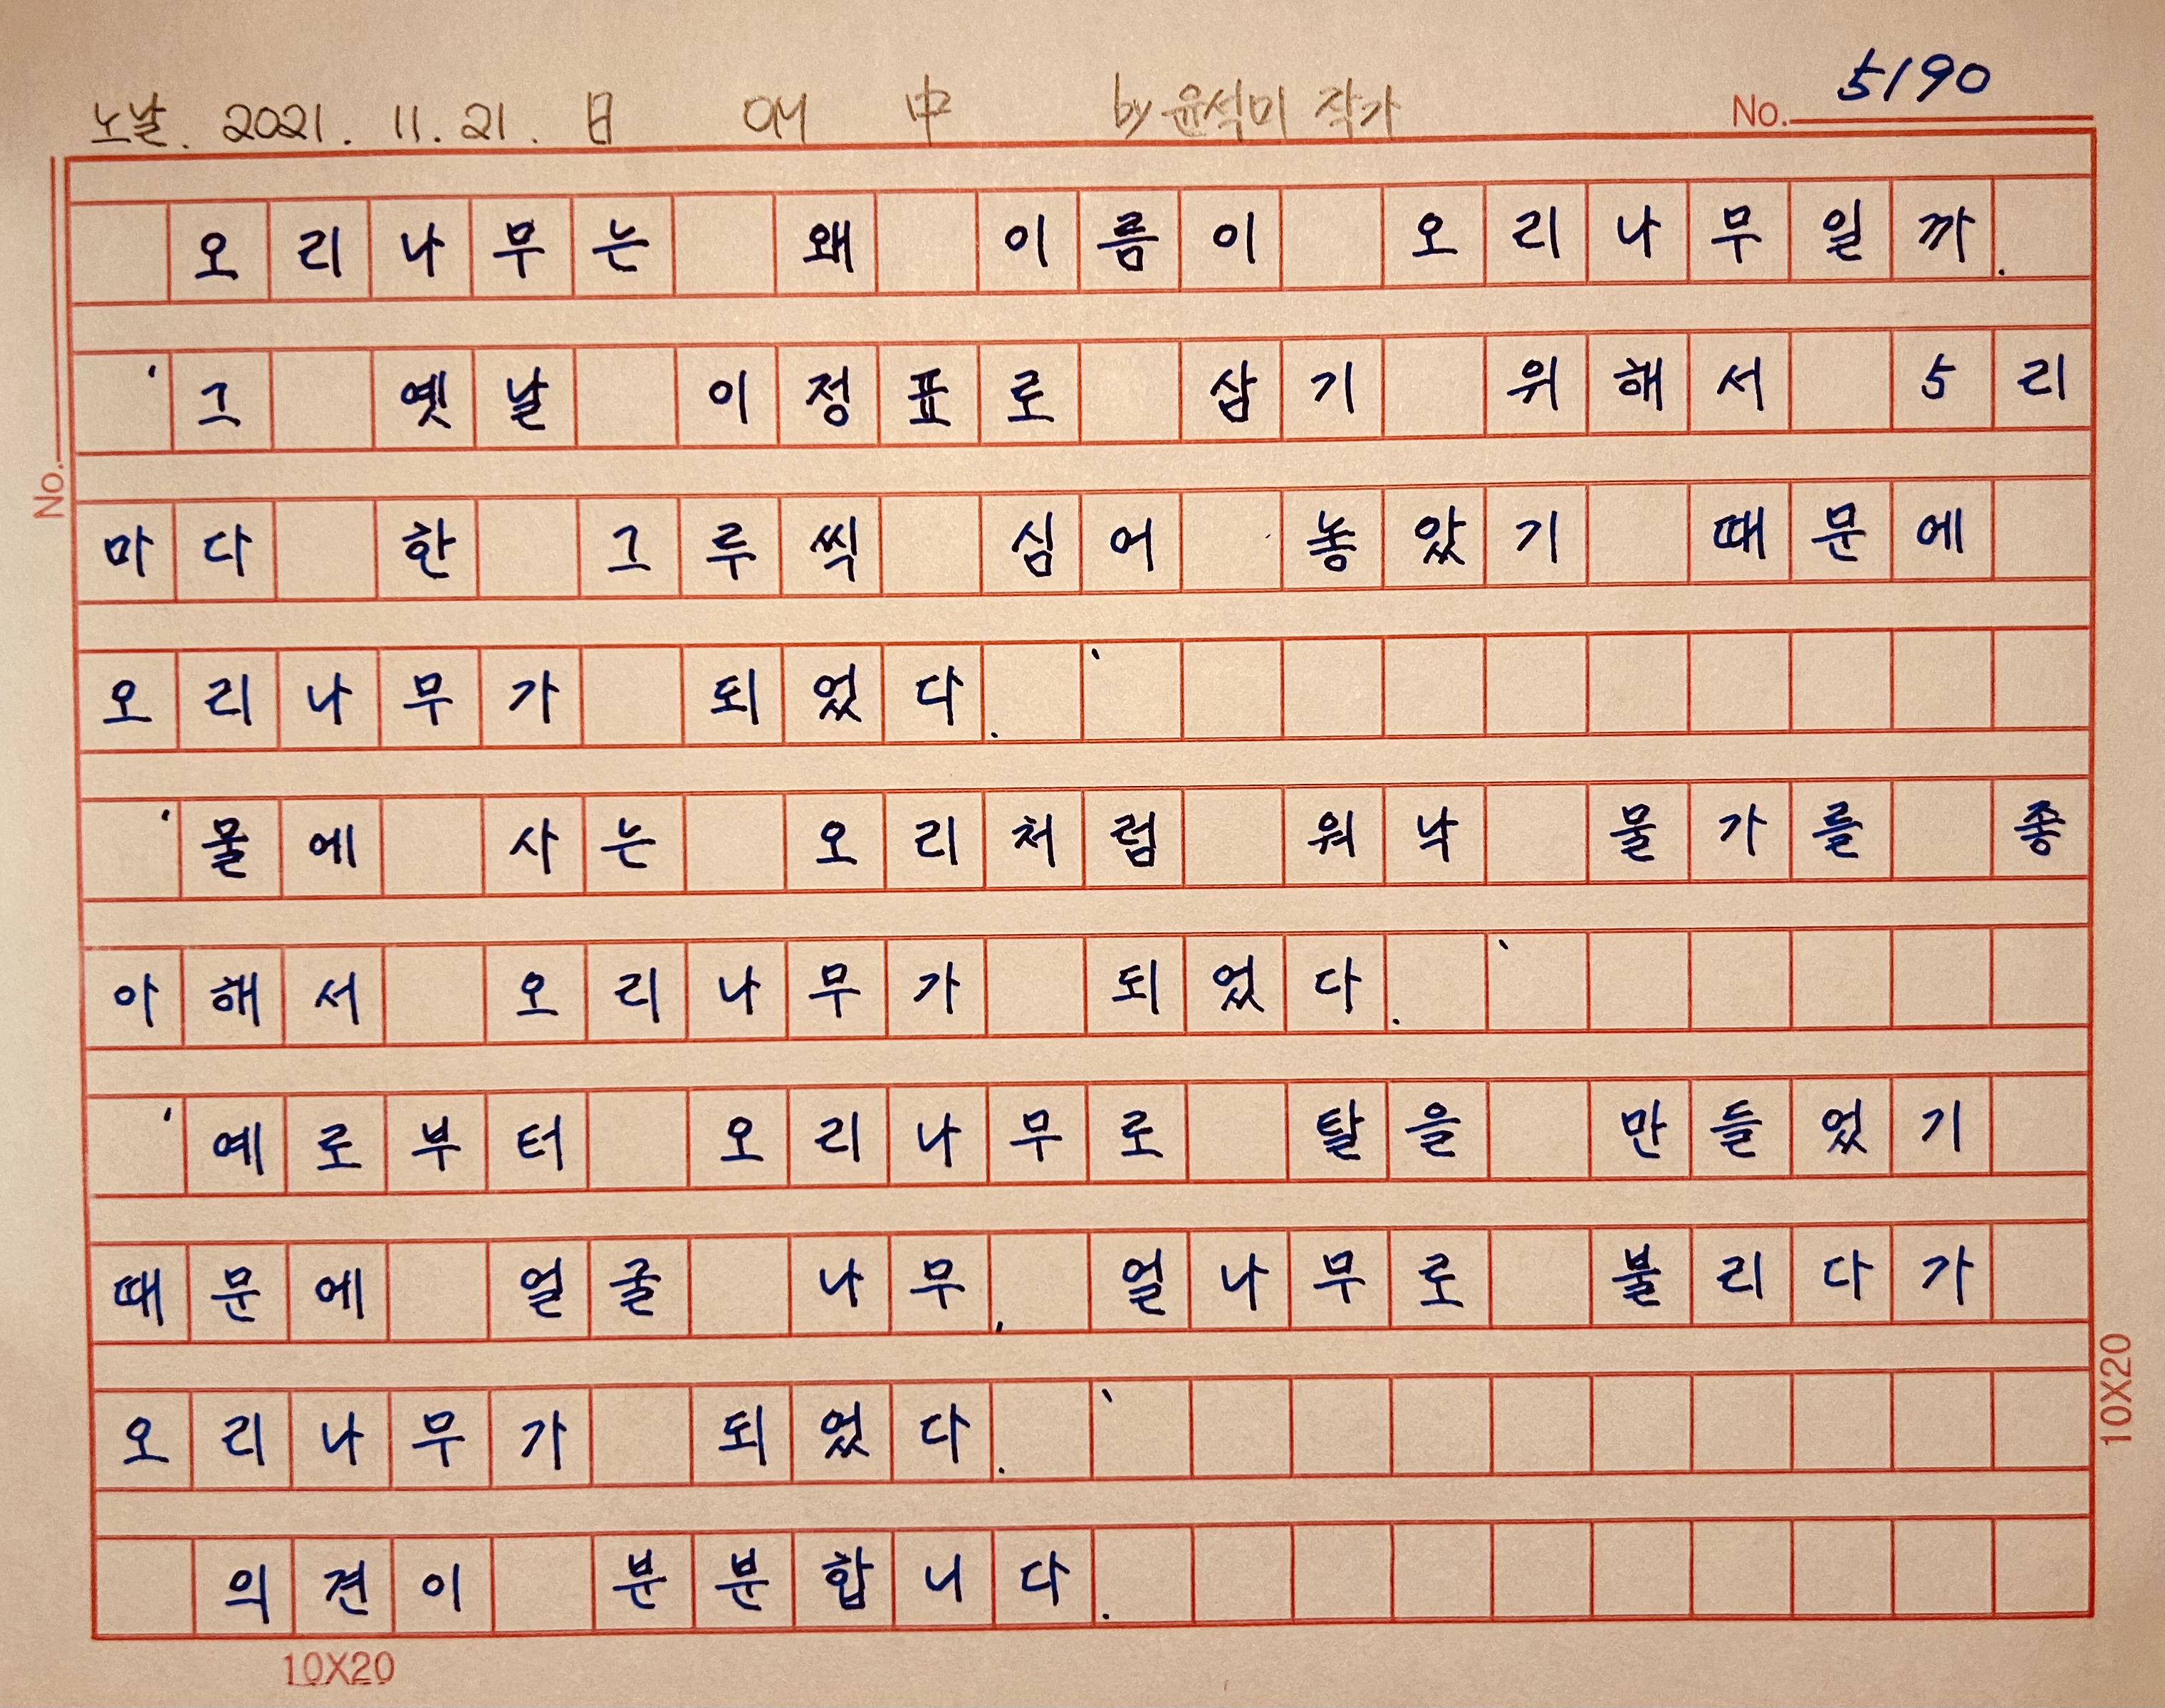 노날. 2021. 11. 21. 日 에 中 by 윤석미 작가
No. 5190
오리나무는 왜 이름이 오리나무일까.
'그 옛날 이정표로 삼기 위해서 5리
No.
마다 한 그루씩 심어 놓았기 때문에
오리나무가 되었다.'
'물에 사는 오리처럼 워낙 물가를 좋
아해서 오리나무가 되었다.'
'예로부터 오리나무로 탈을 만들었기
때문에 얼굴 나무, 얼나무로 불리다가
오리나무가 되었다.'
의견이 분분합니다.
10X20
10X20